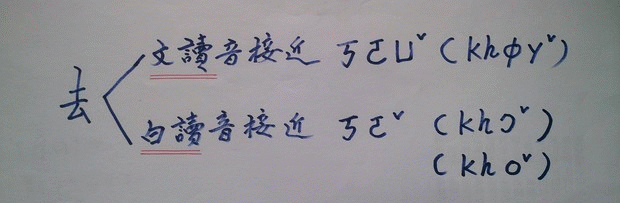 去
文讀音接近 ㄎㄛㄩˇ (khφyˇ)
白讀音接近 ㄎㄛˇ (khɔˇ)
(khoˇ)